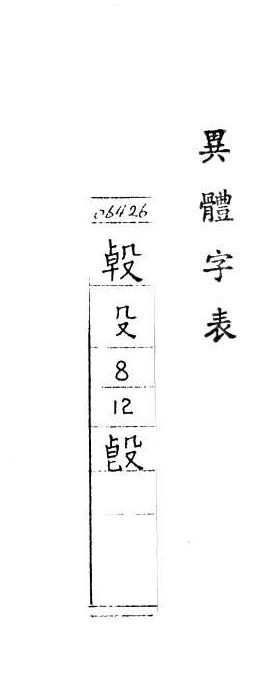 異體字表
06426
殳
8
12